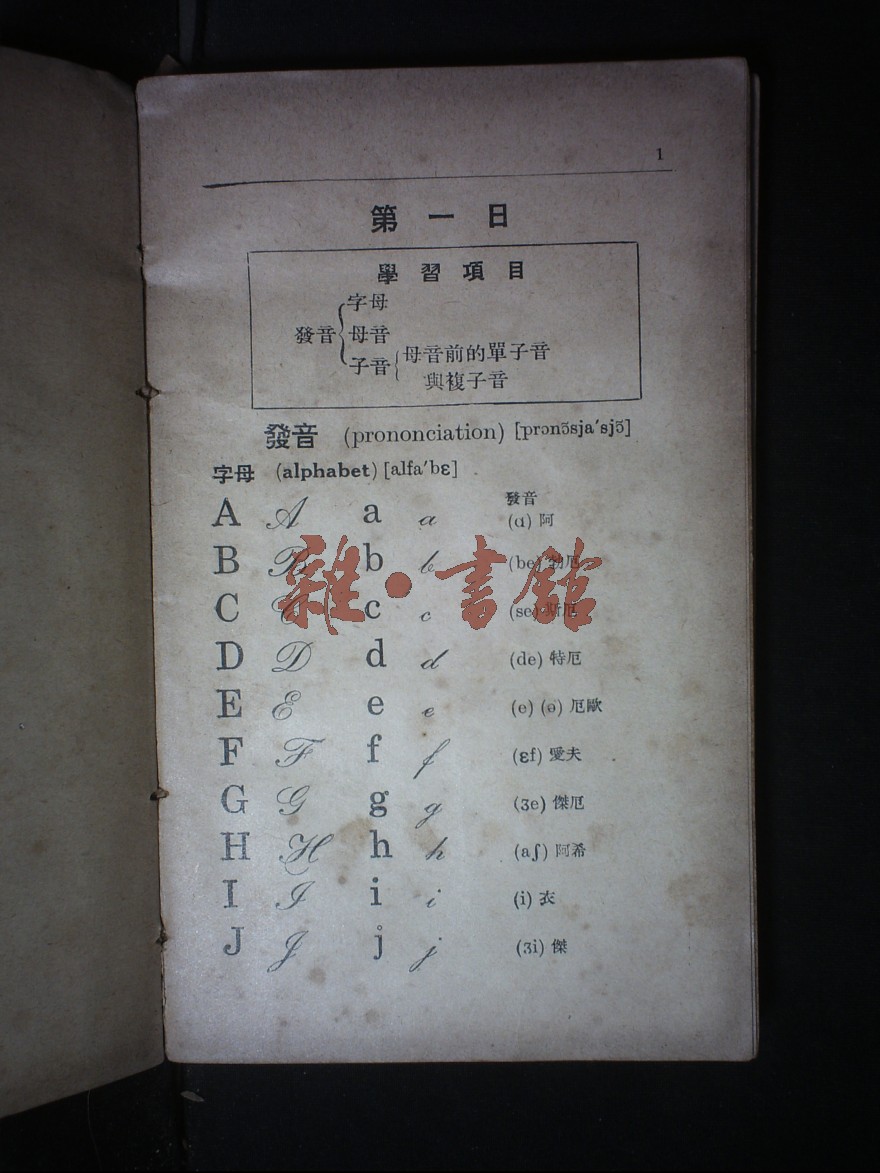 1
第一日
學習項目
字母
發音 母音
子音 母音前的單子音
與複子音
發音 (prononciation) [prɔnɔ̃sja'sjɔ̃]
字母 (alphabet) [alfa'bɛ]
發音
A A a a (ɑ) 阿
B B b b (be) 勃厄
C C c c (se) 斯厄
D D d d (de) 特厄
E E e e (e) (ə) 厄歐
F F f f (ɛf) 愛夫
G G g g (ʒe) 傑厄
H H h h (aʃ) 阿希
I I i i (i) 衣
J J j j (ʒi) 傑
雜·書館